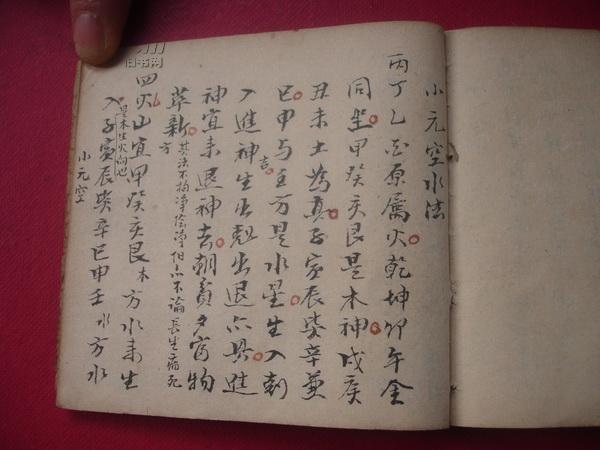 小元空水法
丙丁乙酉原属火乾坤卯午金
同坐甲癸亥艮是木神戌庚
丑未土為真子寅辰巽辛兼
巳申与壬方是水星生入剋
入進神生出尅出退六具進
吉
神宜来退神去朝貧夕富物
革新
方
其法不拘净陰净 不論長生病死
四火山宜甲癸亥艮木方水来生
入是木生火向也子寅辰巽辛巳申壬水方水
小元空
旧书网